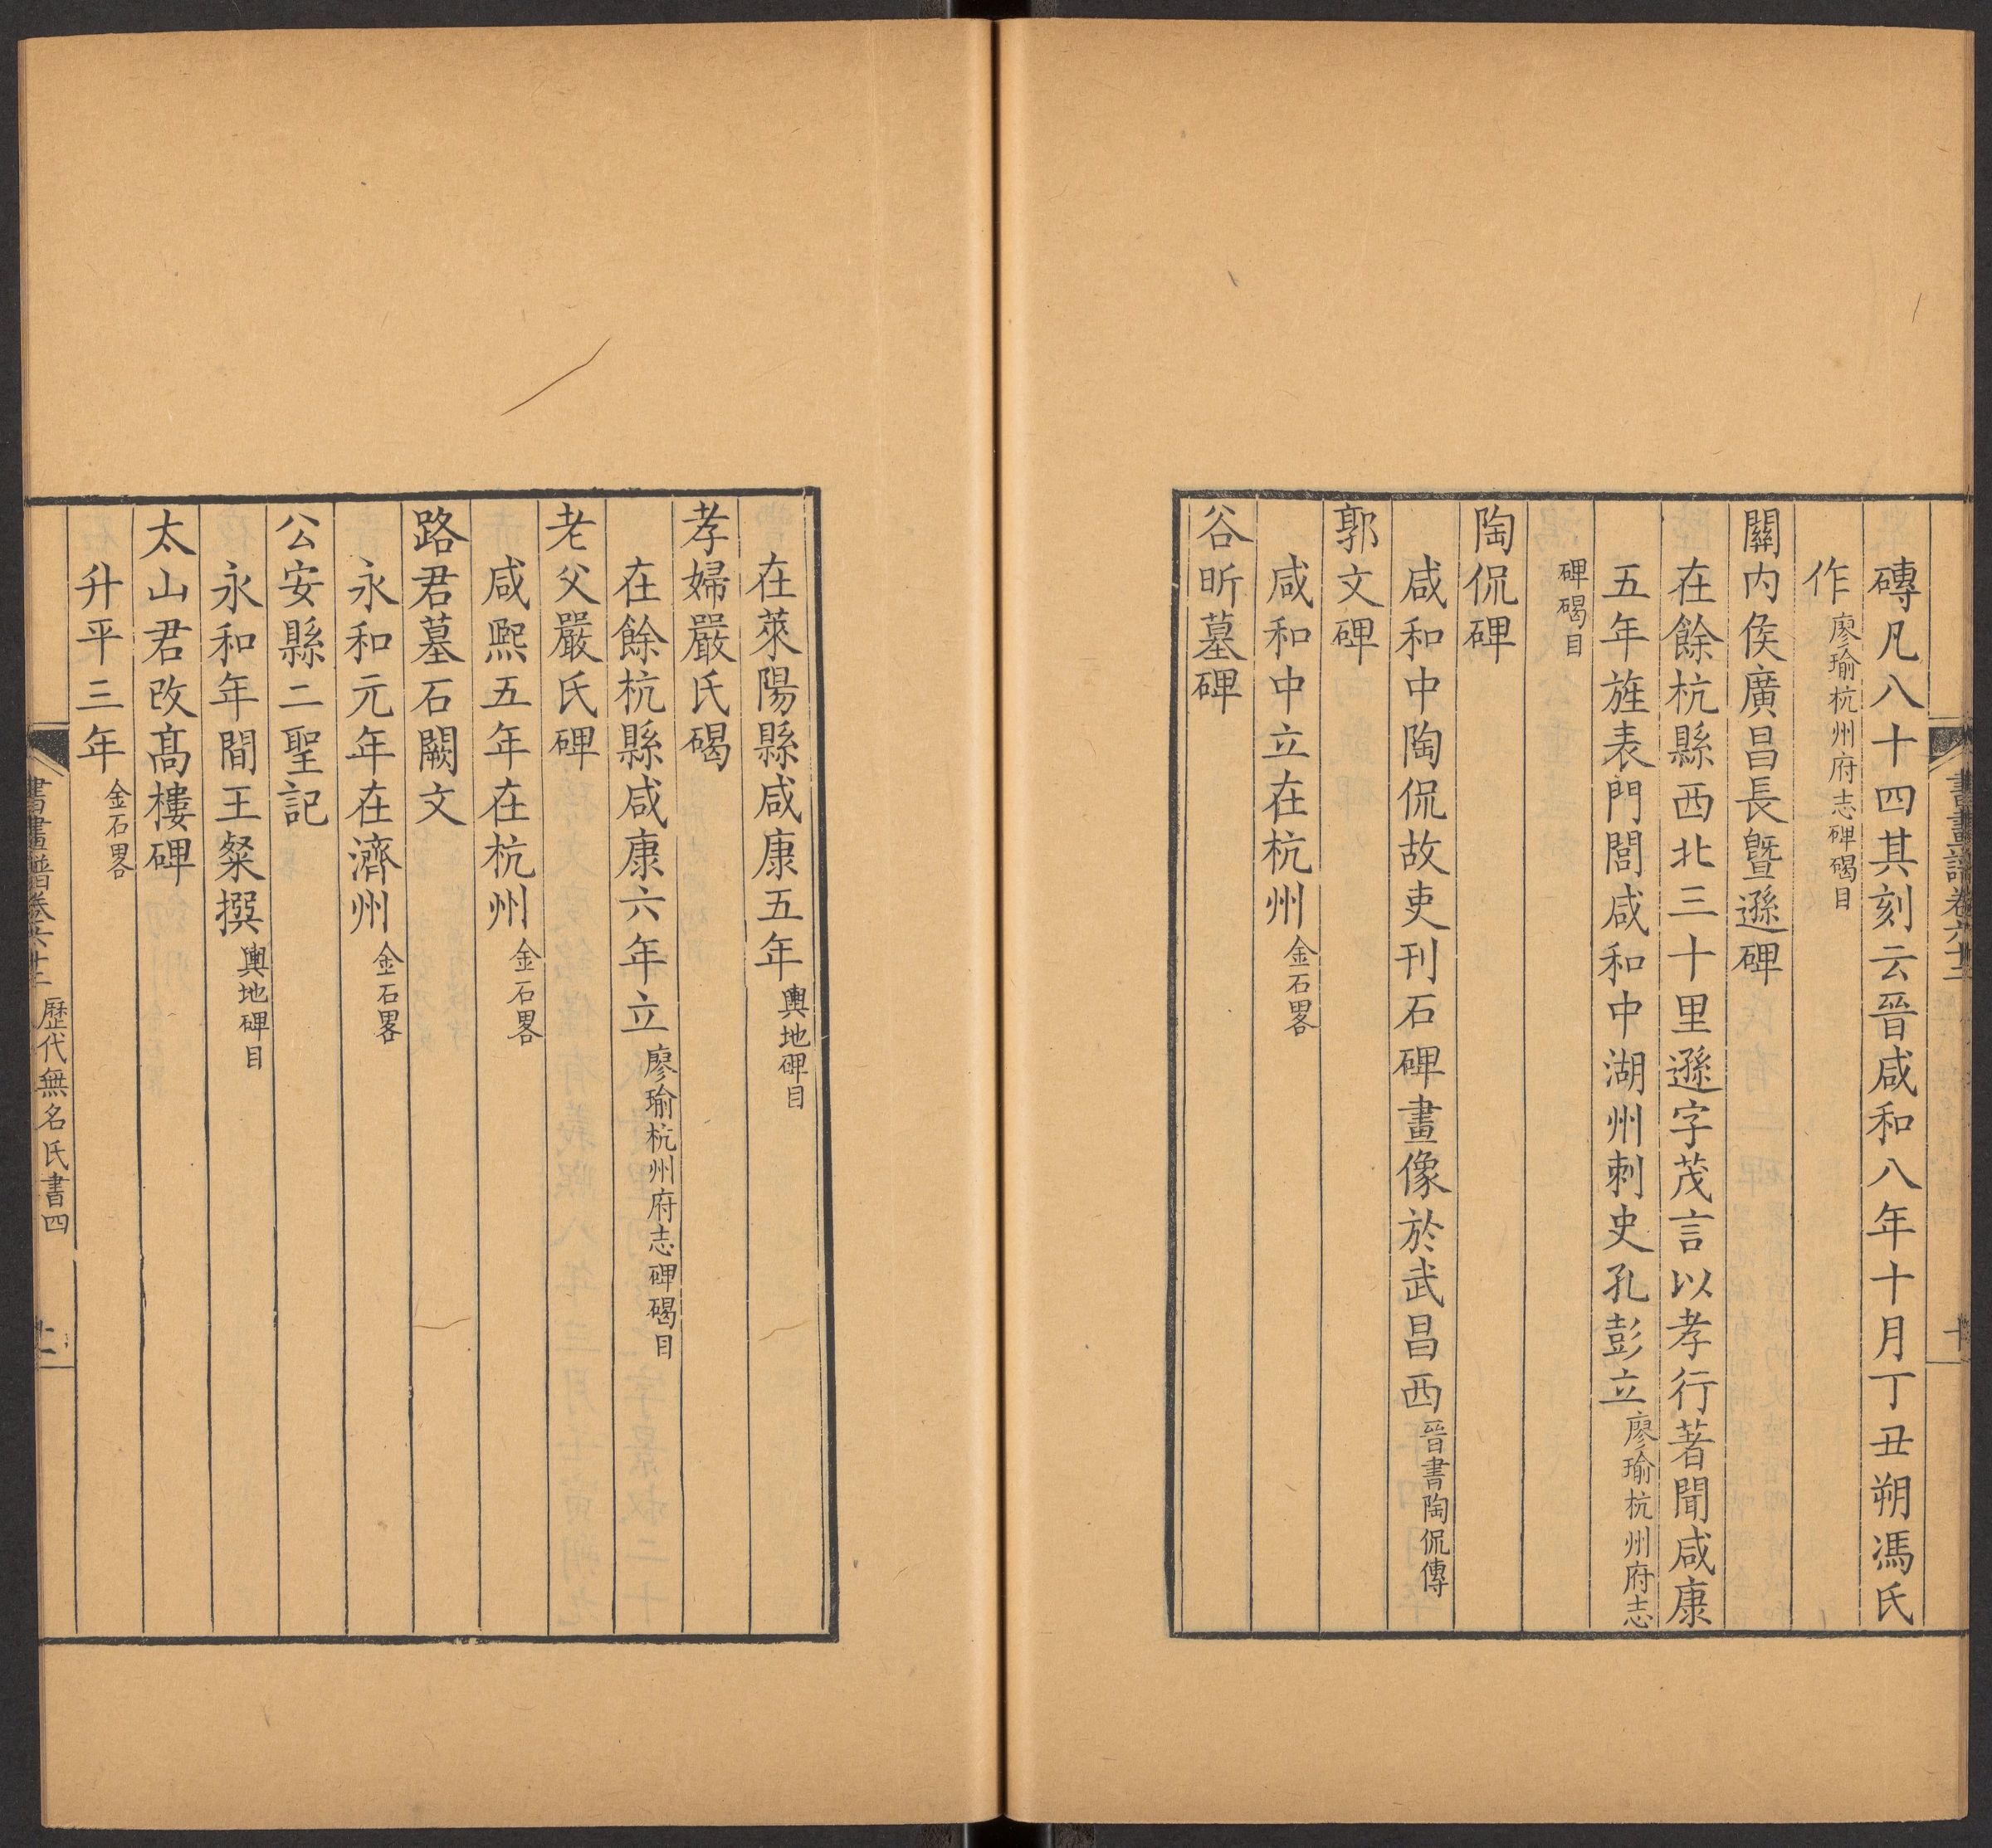 磚凡八十四其刻云晉咸和八年十月丁丑朔馮氏
作廖瑜杭州府志碑碣目
關内侯廣昌長暨遜碑
在餘杭縣西北三十里遜字茂言以孝行著聞咸康
五年旌表門閭咸和中湖州刺史孔彭立廖瑜杭州府志
碑碣目
陶侃碑
咸和中陶侃故吏刊石碑畫像於武昌西晉書陶侃傳
郭文碑
咸和中立在杭州金石畧
谷昕墓碑
在萊陽縣咸康五年輿地碑目
孝婦嚴氏碣
在餘杭縣咸康六年立廖瑜杭州府志碑碣目
老父嚴氏碑
咸熙五年在杭州金石畧
路君墓石闕文
永和元年在濟州金石畧
公安縣二聖記
永和年間王粲撰輿地碑目
太山君改髙樓碑
升平三年金石畧
書畫譜卷六十二 歷代無名氏書四